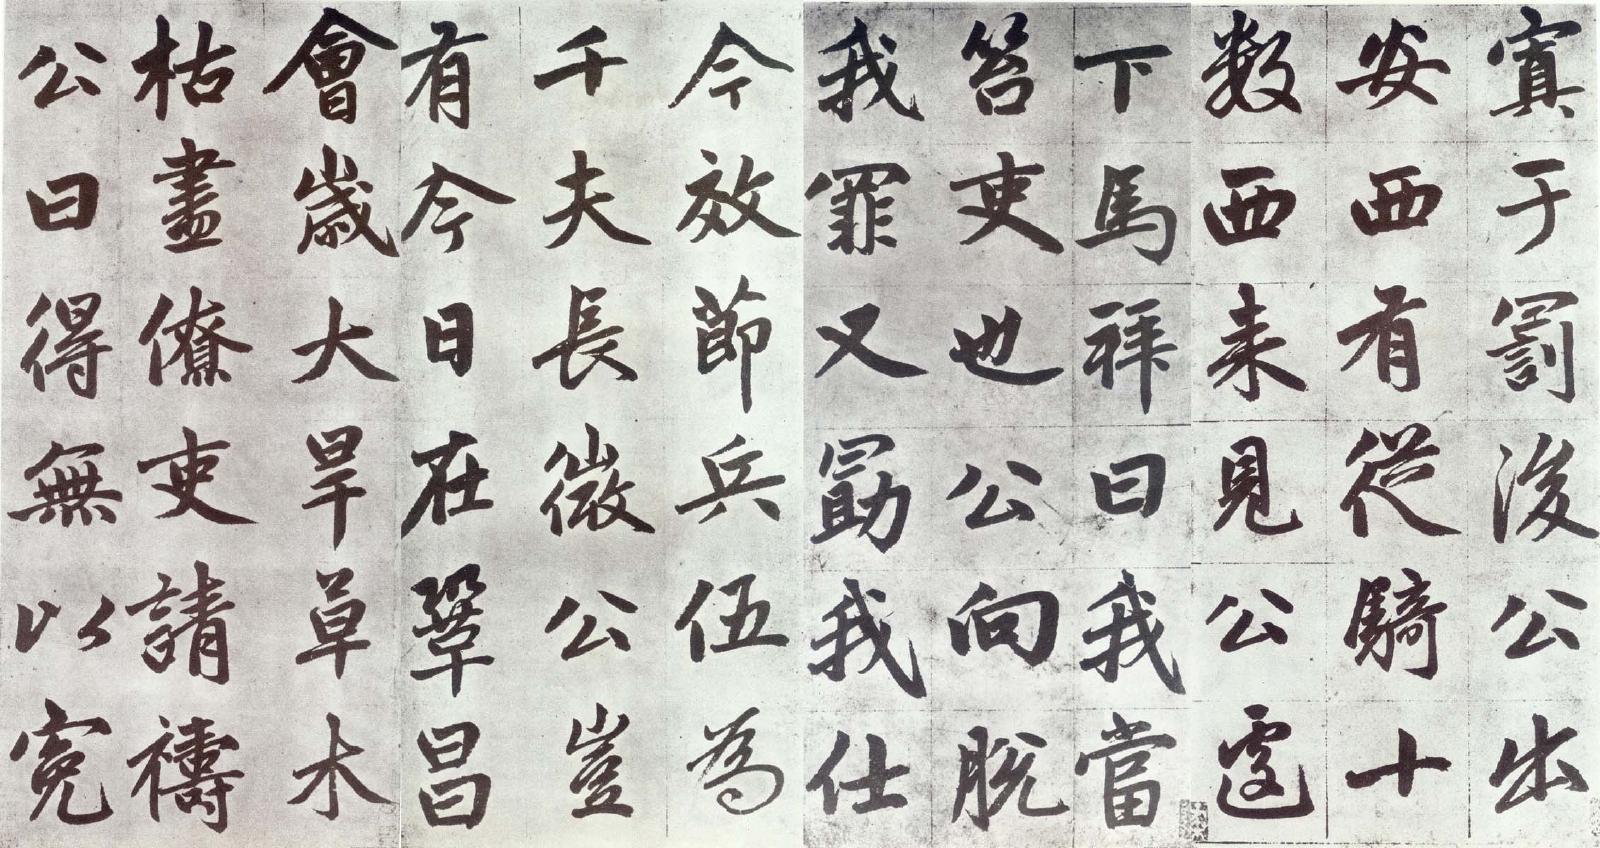 寘于罰後公出
安西有從騎十
数西来見公遽
下馬拜曰我當
笞吏也公向脫
我罪又勗我仕
今效節兵伍為
千夫長微公豈
有今日在鞏昌
會歲大旱草木
枯盡僚吏請禱
公曰得無以冤